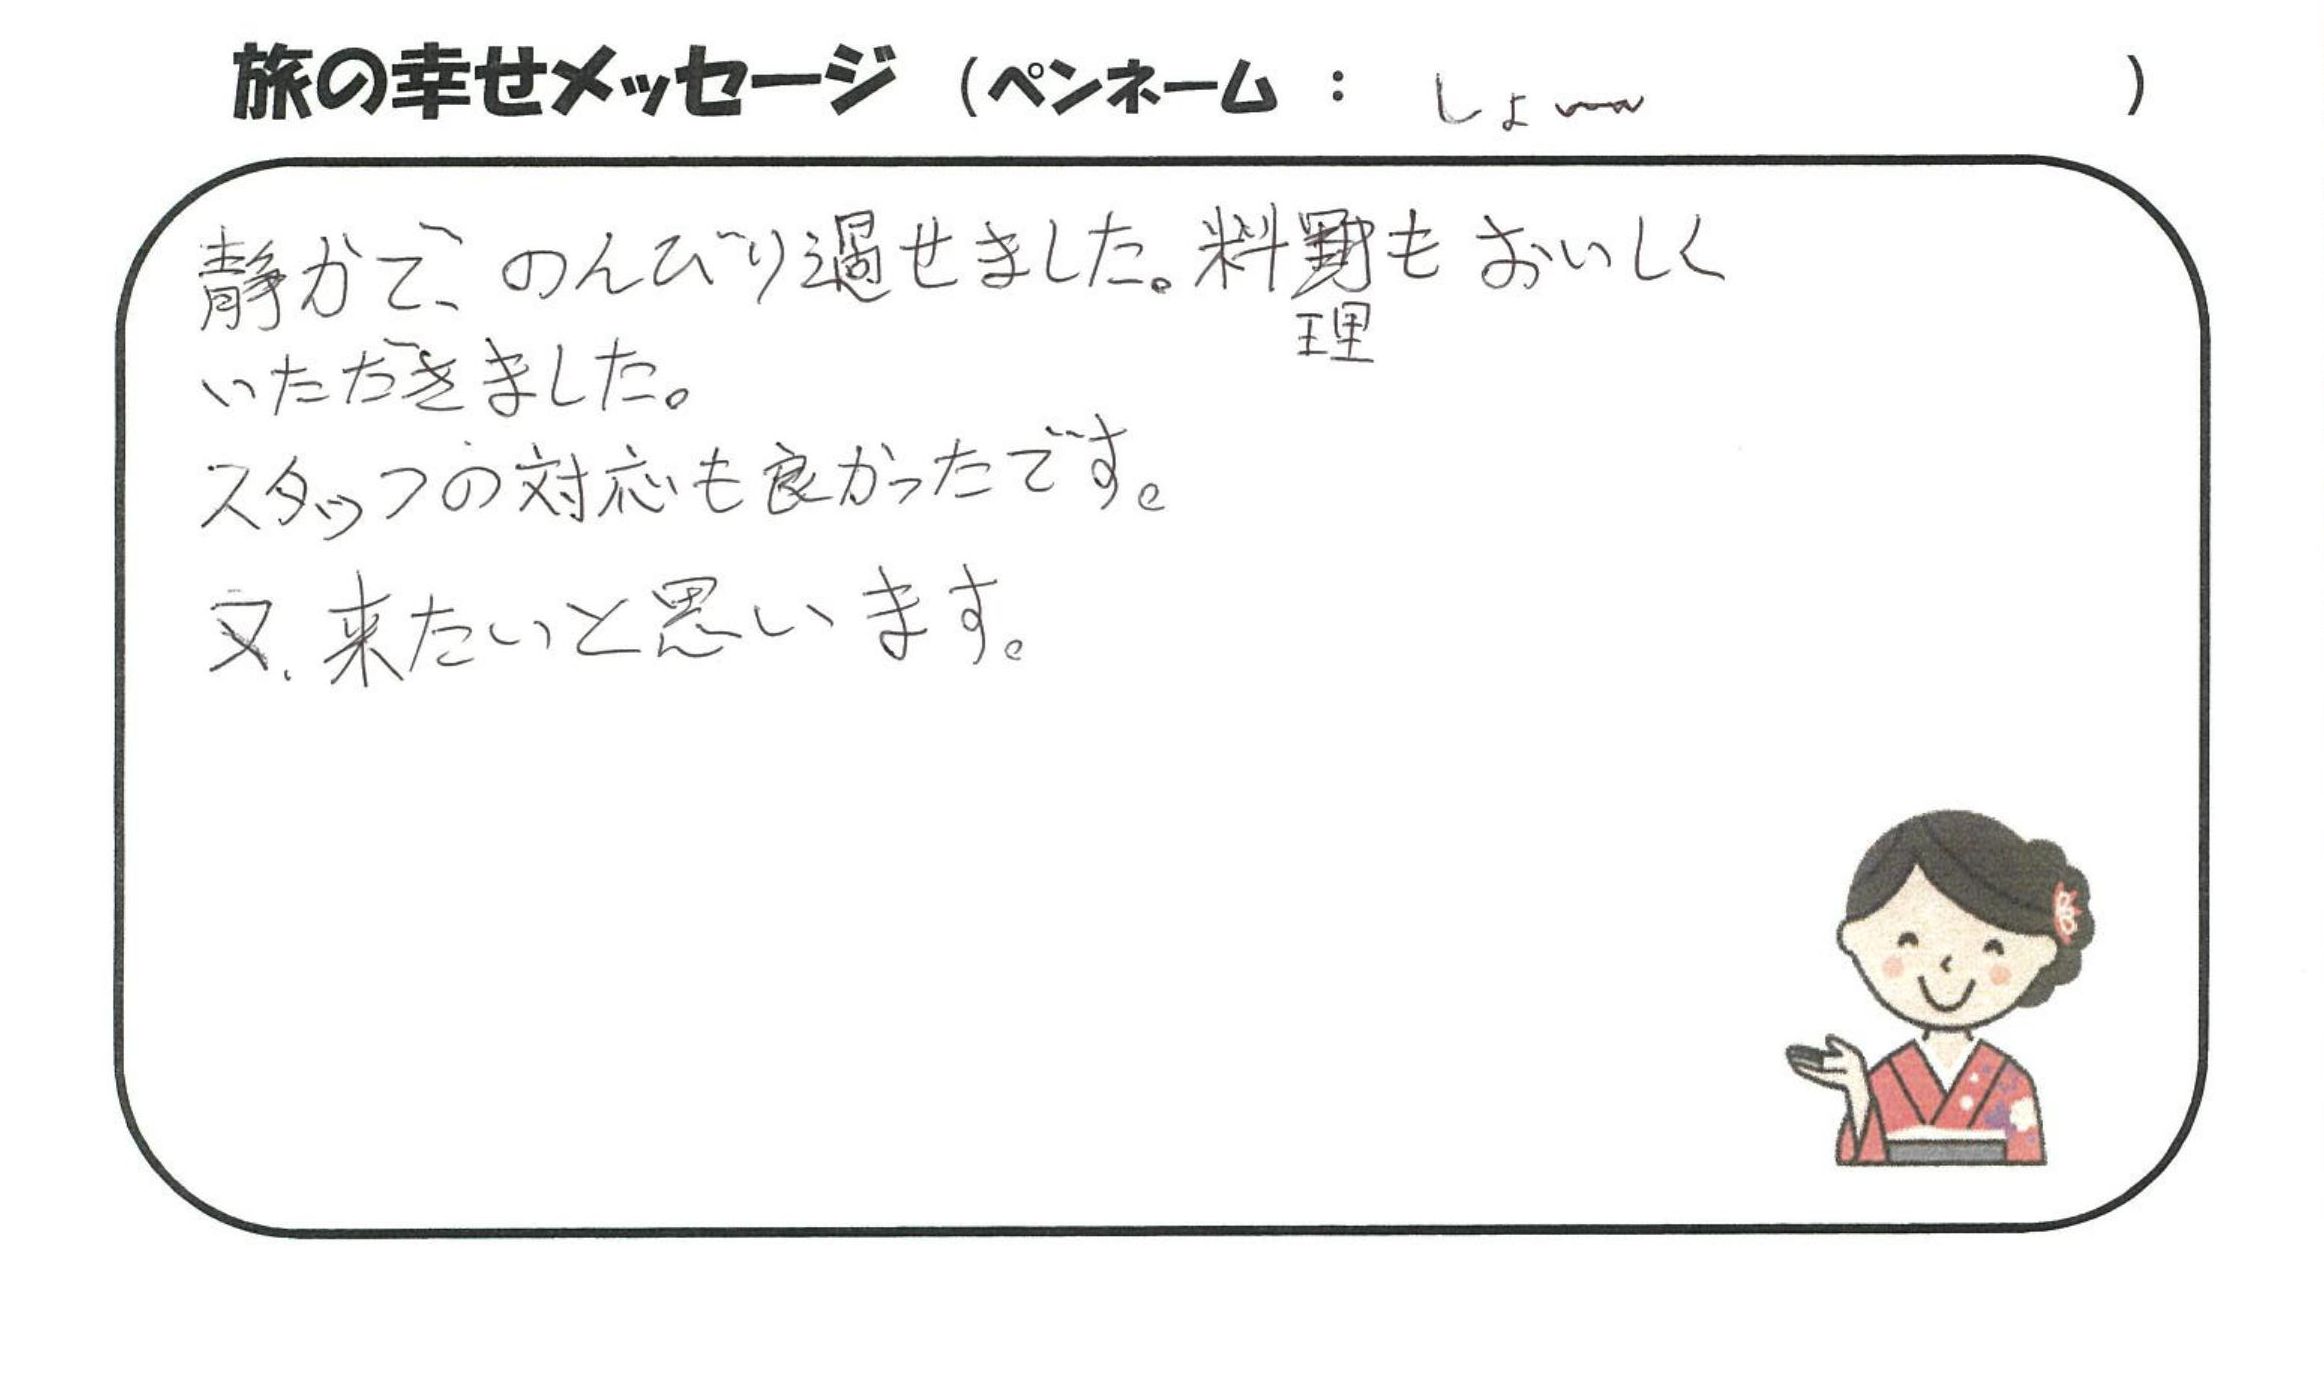 旅の幸せメッセージ (ペンネーム : しょ〜 )
静かで、のんびり過せました。料理もおいしく
いただきました。
スタッフの対応も良かったです。
又、来たいと思います。